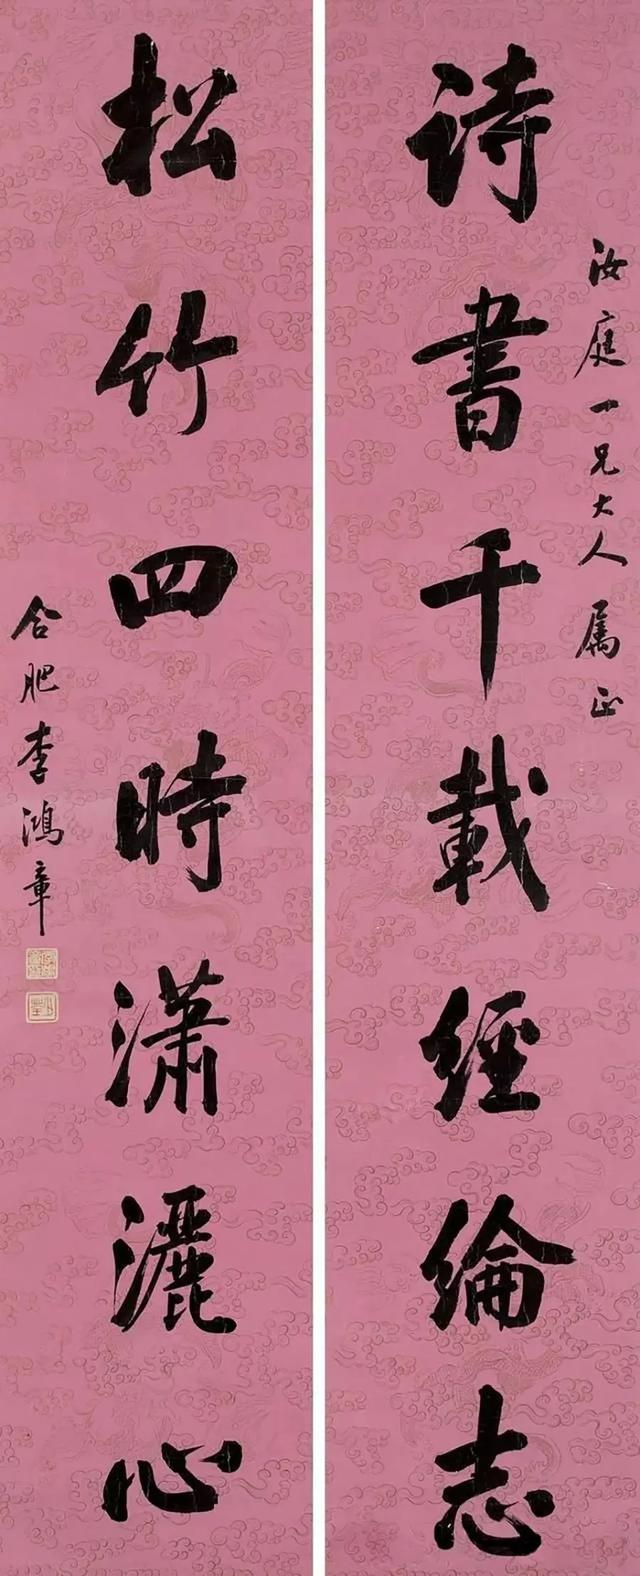 汝庭一兄大人属正
詩書千載經綸志
松竹四時瀟灑心
合肥李鴻章